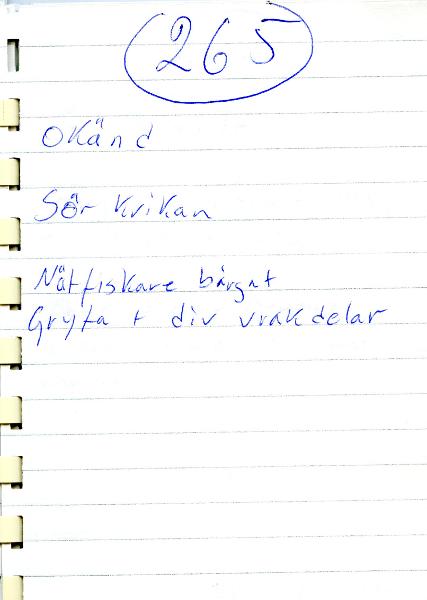 265
Okänd
Sör Kvikan
Nätfiskare bärgat
Gryta + div vrakdelar